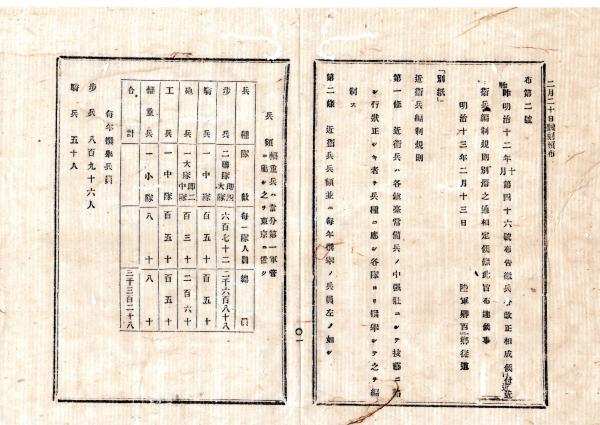 二月二十日
布第二號
昨明治十二年十月第四十六號布告徵兵令改正相成候付近
衛兵編制規則別紙之通相定候條此旨布達候事
明治十三年二月十三日
陸軍卿西鄉從道
「別紙」
近衛兵編制規則
第一條 近衛兵ハ各鎮臺常備兵ノ中强壯ニシテ技藝ニ
シ行狀正シキ者ヲ兵種ニ應シ各隊ヨリ撰擧シテ之ヲ編
制ス
第二條 近衛兵兵額並ニ每年撰擧ノ兵員左ノ如シ
〇一
兵額 輜重兵ハ當分第一軍管
ニ屬シ之ヲ東京ニ置ク
兵種 隊數 每一隊人員 總員
步兵 二聯隊即四大隊 六百七十二 二千六百八十八
騎兵 一中隊 百五十 百五十
砲兵 一大隊即二中隊 百三十 二百六十
工兵 一中隊 百五十 百五十
輜重兵 一小隊 八十 八十
合計 三千三百二十八
每年撰擧兵員
步兵 八百九十六人
騎兵 五十人